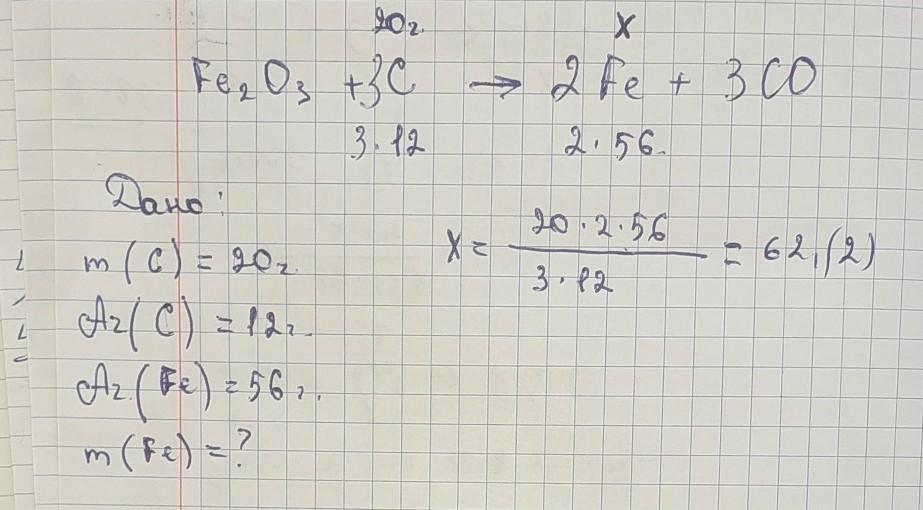 20г. x
Fe₂O₃ + 3C → 2Fe + 3CO
3·12 2·56.
Дано:
m(C) = 20г.
Ar(C) = 12г.
Ar(Fe) = 56г.
m(Fe) = ?
x = (20·2·56)/(3·12) = 62,(2)